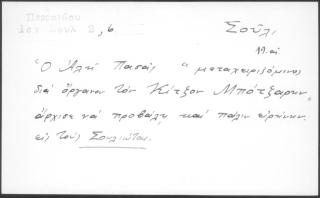 Περραιβου
Ιστ Σουλ 2, 6
Σοῦλι
19. αἰ
"Ὁ Ἀλῆ Πασᾶς "μεταχειριζόμενος
διά ὄργανα τὸν Κίτζον Μπότζαρην
ἄρχισε νά προβάλῃ καί πάλιν εἰρήνην
εἰς τούς Σουλιώτας.